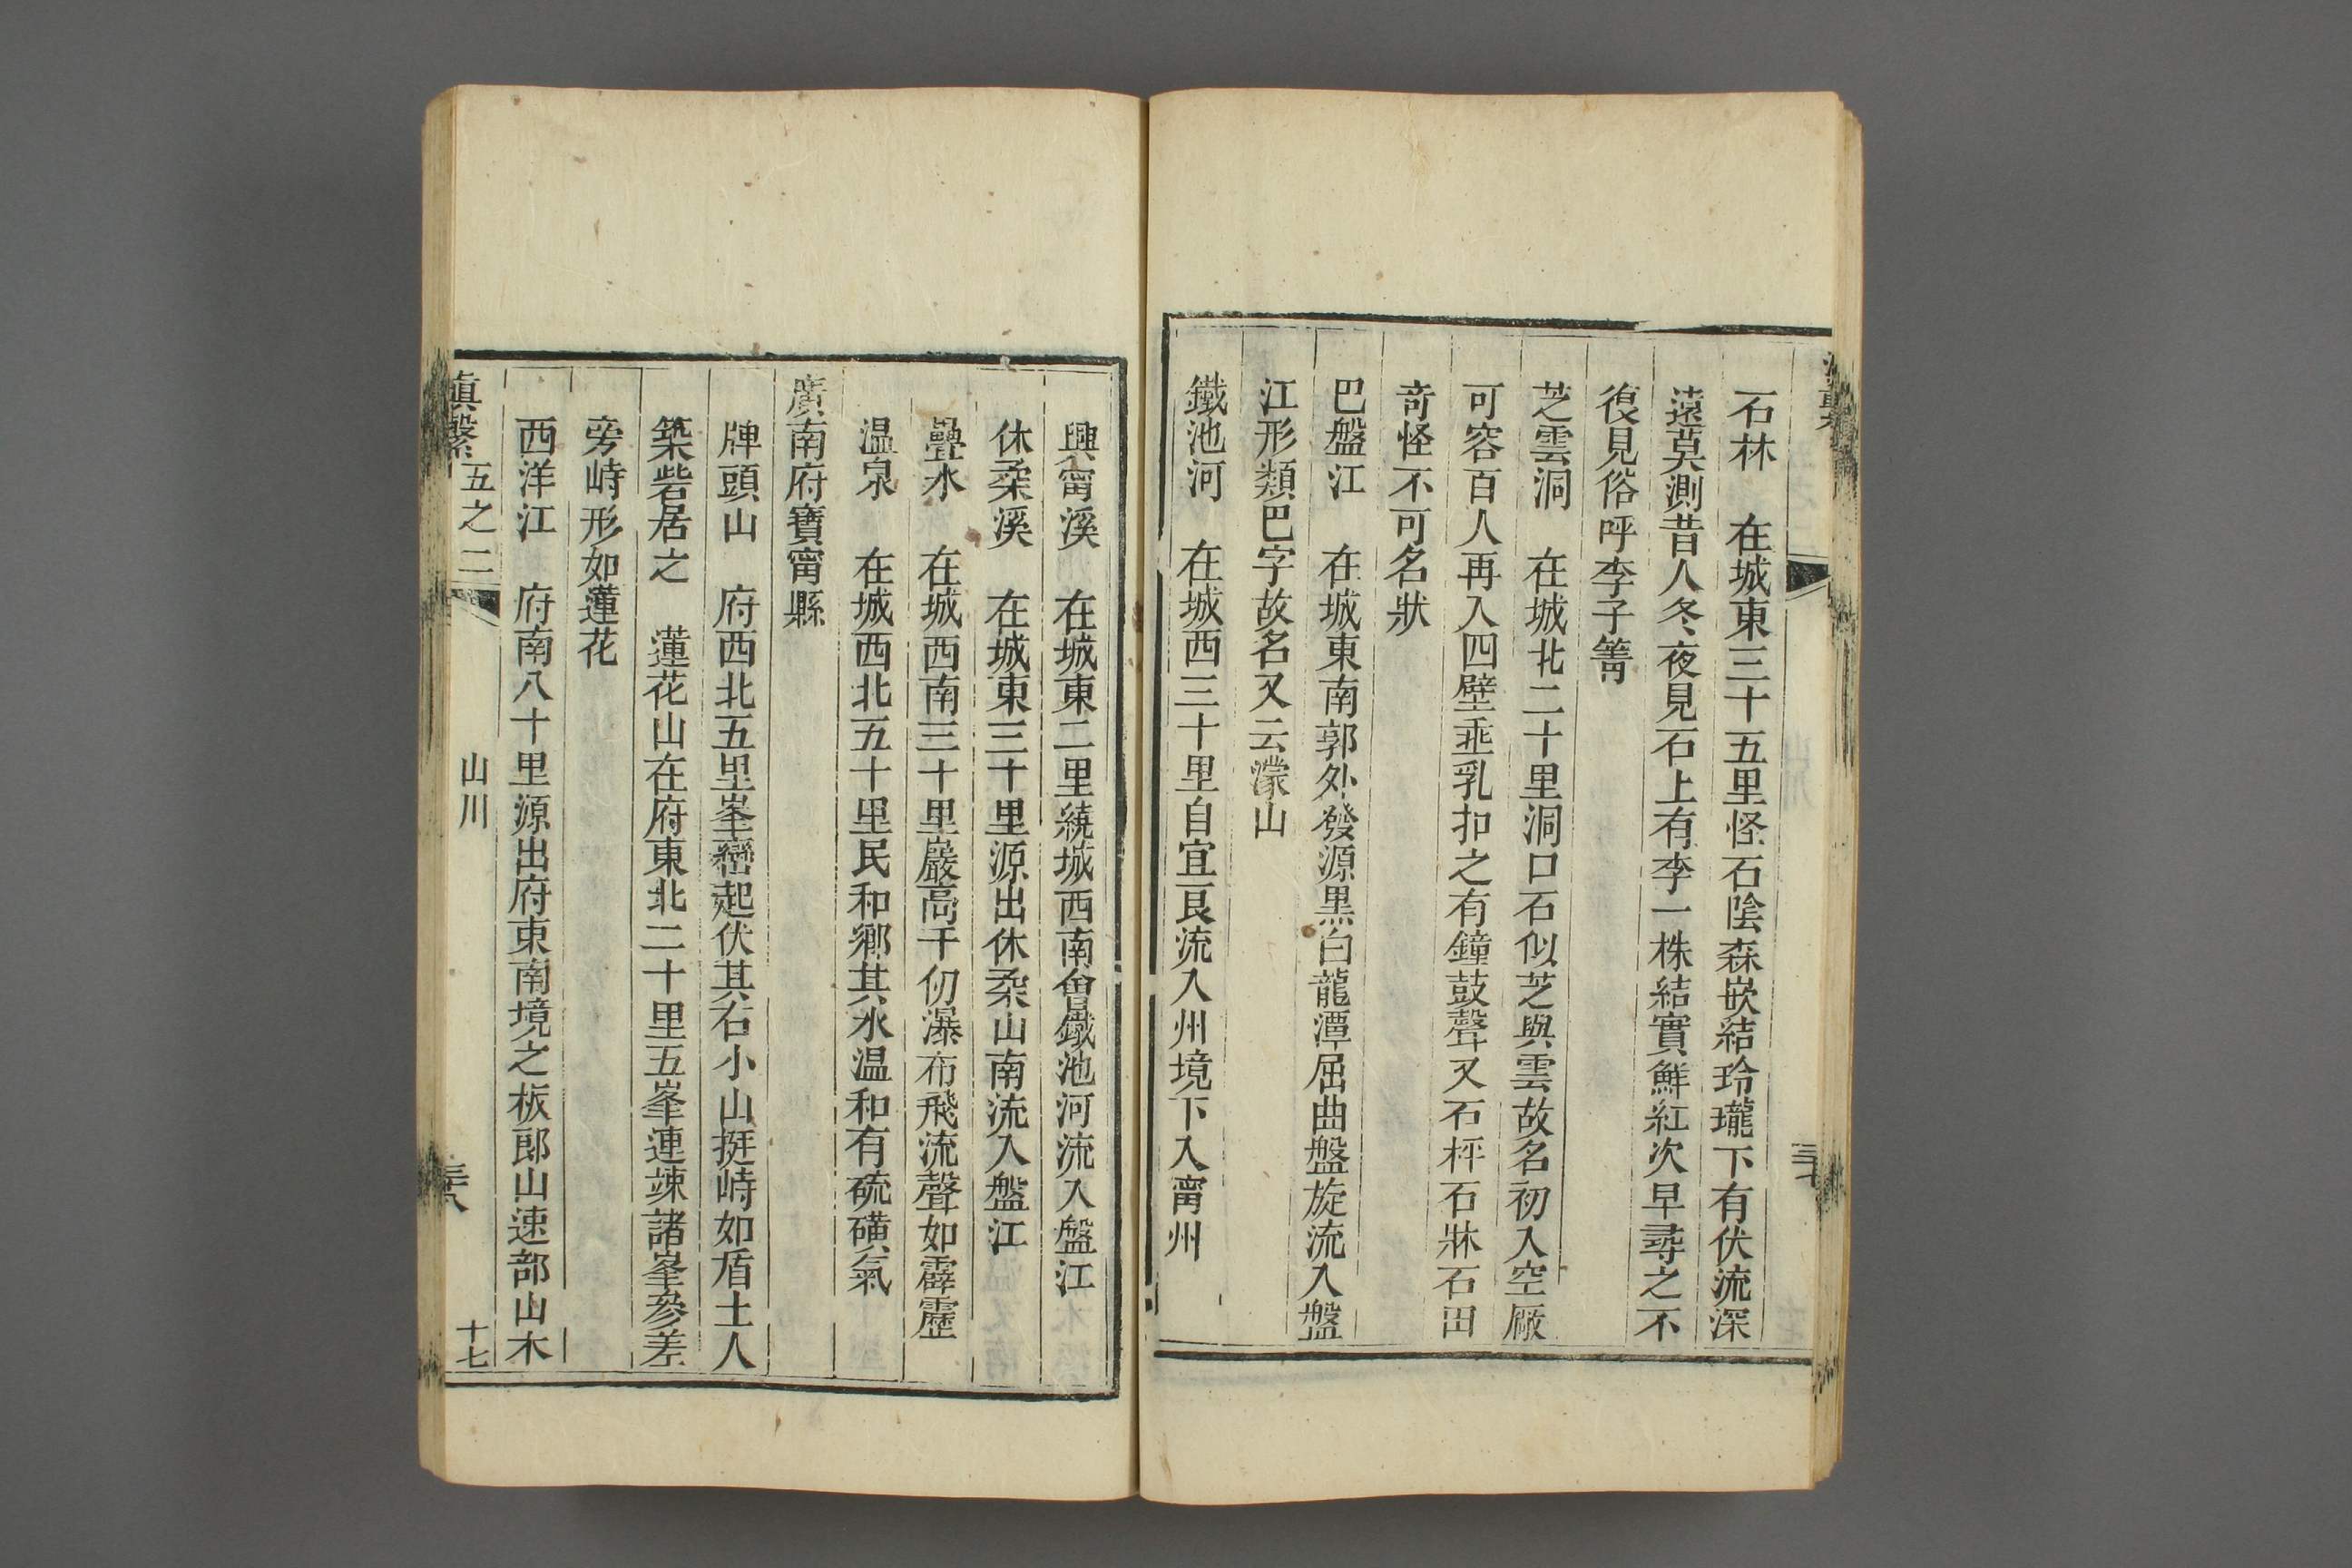 石林　在城東三十五里怪石陰森嵌結玲瓏下有伏流深
遠莫測昔人冬夜見石上有李一株結實鮮紅次早尋之不
復見俗呼李子箐
芝雲洞　在城北二十里洞口石似芝與雲故名初入空厰
可容百人再入四壁垂乳扣之有鐘鼓聲又石枰石牀石田
竒怪不可名狀
巴盤江　在城東南郭外發源黒白龍潭屈曲盤旋流入盤
江形類巴字故名又云濛山
鐵池河　在城西三十里自宜良流入州境下入甯州
興甯溪　在城東二里繞城西南會鐵池河流入盤江
休柔溪　在城東三十里源出休柔山南流入盤江
疊水　在城西南三十里巖高千仞瀑布飛流聲如霹靂
温泉　在城西北五十里民和鄉其水温和有硫磺氣
廣南府寶甯縣
牌頭山　府西北五里峯巒起伏其右小山挺峙如盾土人
築砦居之　蓮花山在府東北二十里五峯連竦諸峯參差
旁峙形如蓮花
西洋江　府南八十里源出府東南境之板郎山速部山木
滇繫　五之二　山川　三十八　十七